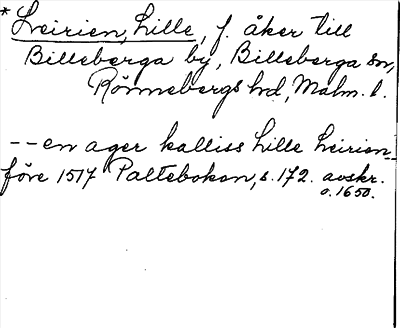 * Leirien, Lille, f. åker till
Billeberga by, Billeberga sn,
Rönnebergs hd, Malm. l.
-- en ager kalliss Lille Leirien --
före 1517 Paltebokon, s. 172. avskr.
o. 1650.